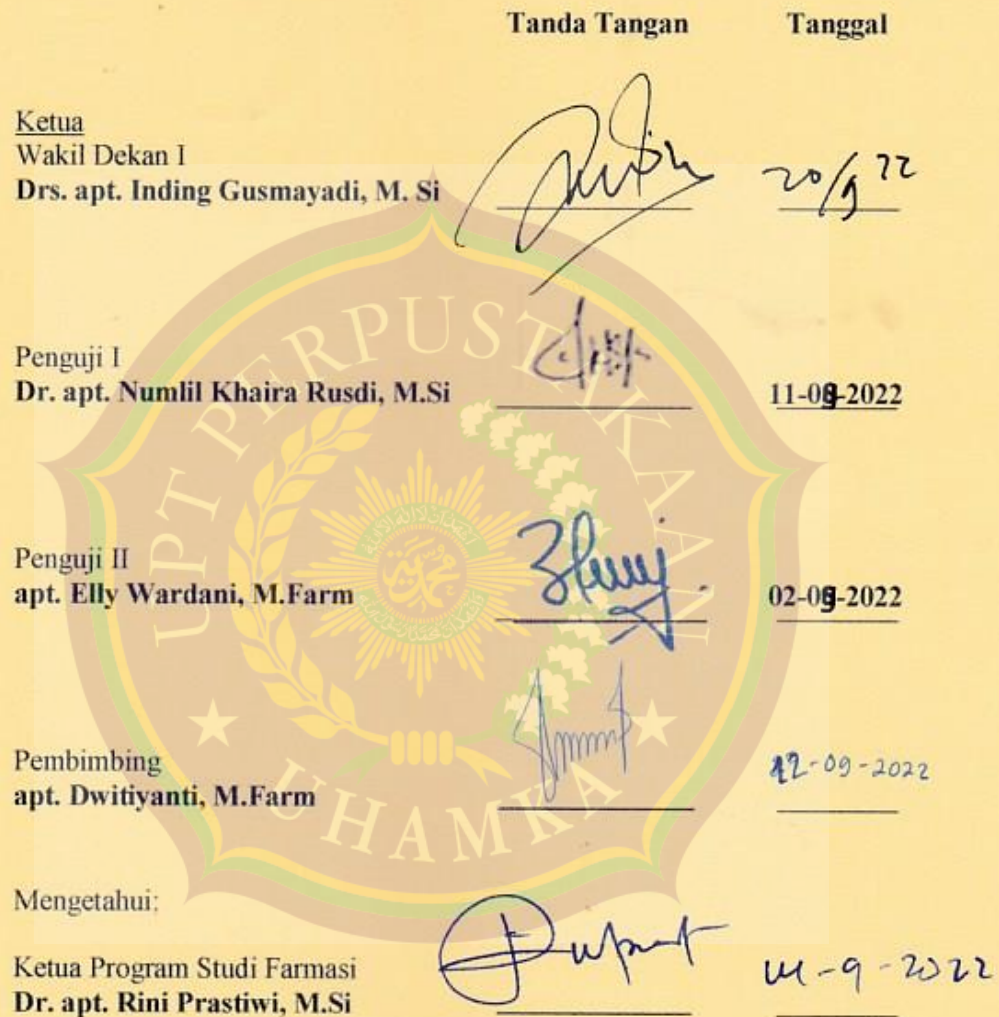 Tanda Tangan Tanggal
Ketua
Wakil Dekan I
Drs. apt. Inding Gusmayadi, M. Si
20/9 22
Penguji I
Dr. apt. Numlil Khaira Rusdi, M.Si
11-09-2022
Penguji II
apt. Elly Wardani, M.Farm
02-09-2022
Pembimbing
apt. Dwitiyanti, M.Farm
12-09-2022
Mengetahui:
Ketua Program Studi Farmasi
Dr. apt. Rini Prastiwi, M.Si
UPT PERPUSTAKAAN
UHAMKA